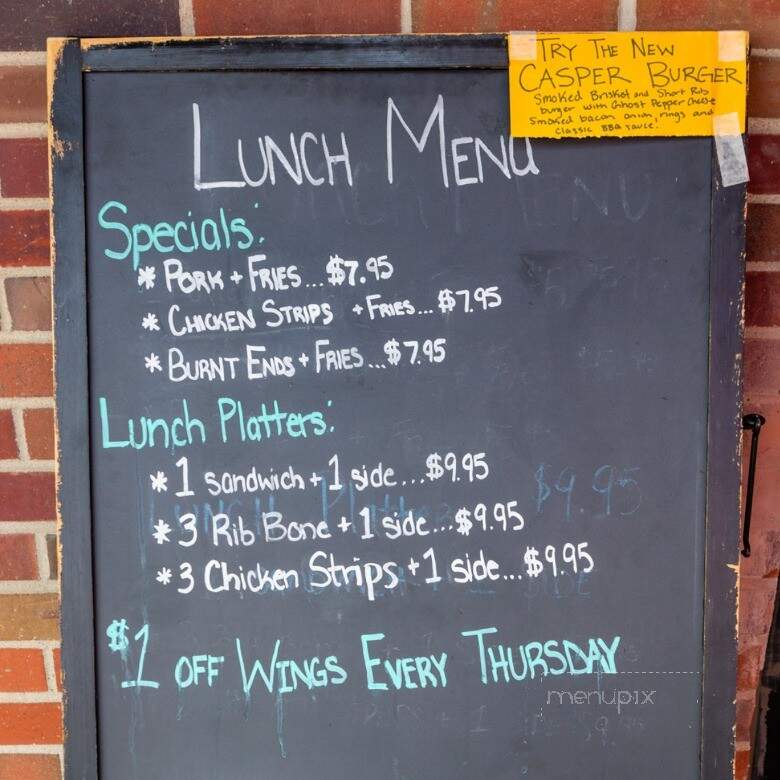 TRY THE NEW
CASPER BURGER
Smoked Brisket and Short Rib
burger with Ghost Pepper Cheese
smoked bacon onion rings and
classic BBQ sauce.
LUNCH MENU
Specials:
* PORK + FRIES... $7.95
* CHICKEN STRIPS + FRIES... $7.95
* BURNT ENDS + FRIES... $7.95
Lunch Platters:
* 1 sandwich + 1 side... $9.95
* 3 Rib Bone + 1 side... $9.95
* 3 Chicken Strips + 1 side... $9.95
$1 OFF WINGS EVERY THURSDAY
menupix